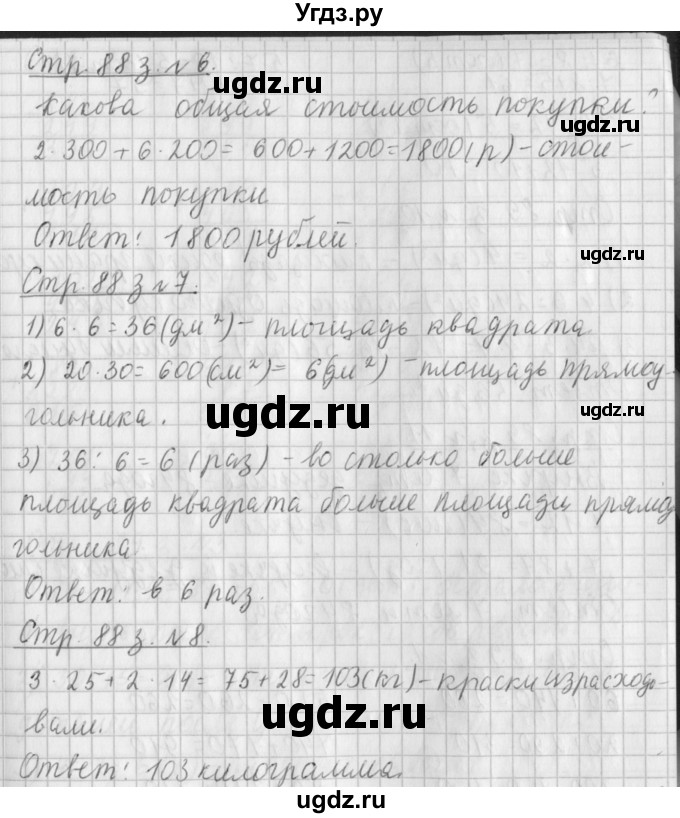 Угдз.ру
Стр. 88 з. № 6.
ugdz.ru
Какова общая стоимость покупки?
ugdz.ru
2·300+6·200= 600+1200=1800(р) – стои-
мость покупки
Ответ: 1800 рублей.
ugdz.ru
Стр. 88 з № 7.
1) 6·6=36(дм²) – площадь квадрата
2) 20·30=600(см²)= 6(дм²) – площадь прямоу-
ugdz.ru
гольника.
ugdz.ru
3) 36:6=6 (раз) – во столько больше
площадь квадрата больше площади прямоу
гольника
ugdz.ru
Ответ: в 6 раз.
Стр. 88 з. № 8.
ugdz.ru
3·25+2·14= 75+28=103(кг) – краски израсходо-
ugdz.ru
вали.
ugdz.ru
Ответ: 103 килограмма.
ugdz.ru